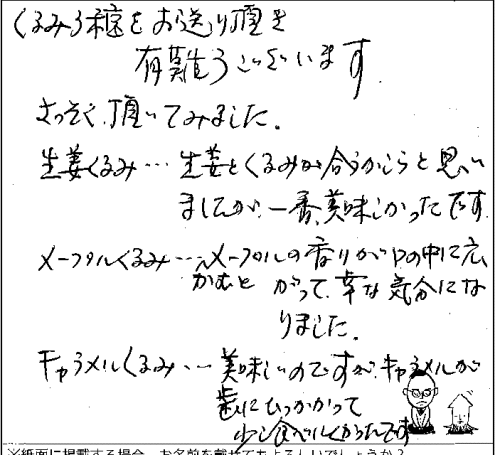 くるみ3種をお送り頂き
有難うございます。
さっそく、頂いてみました。
生姜くるみ…生姜とくるみが合うかしらと思い
ましたが、一番、美味しかったです。
メープルくるみ…メープルの香りが口の中に広
かむと がって、幸な気分にな
りました。
キャラメルくるみ…美味しいのですが、キャラメルが
歯にひっかかって
少し食べにくかったです
※紙面に掲載する場合、お名前を載せてもよろしいでしょうか？